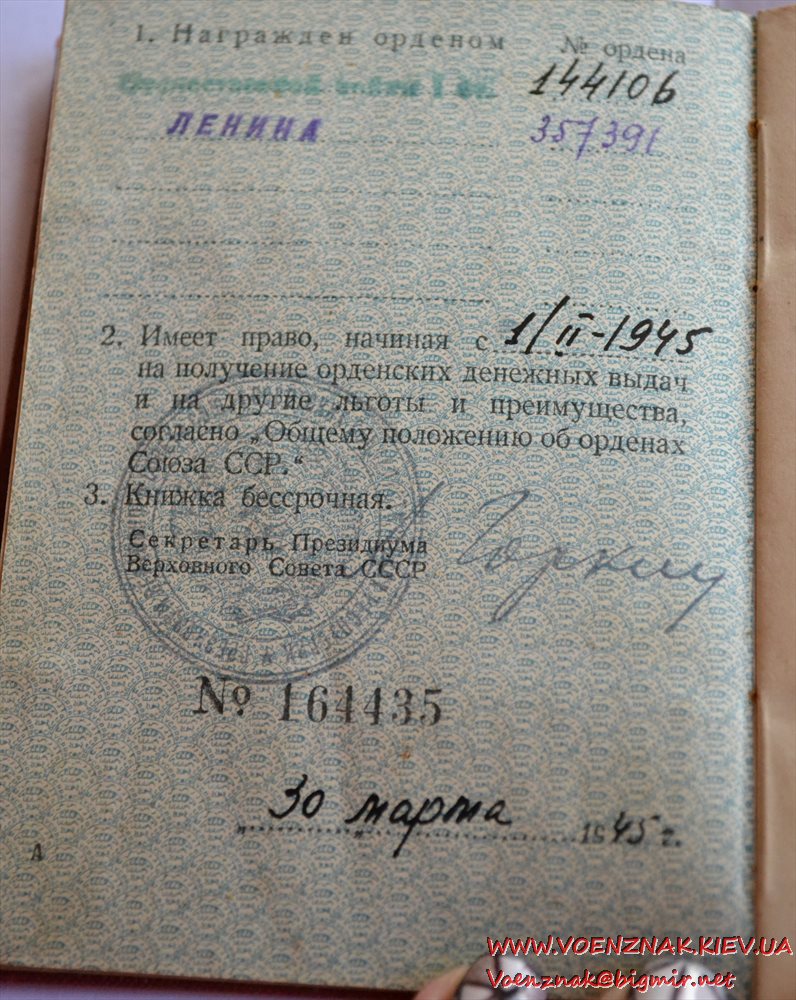 1. Награжден орденом № ордена
Отечественной войны I ст. 144106
ЛЕНИНА 357391
2. Имеет право, начиная с 1/II-1945
на получение орденских денежных выдач
и на другие льготы и преимущества,
согласно „Общему положению об орденах
Союза ССР.“
3. Книжка бессрочная.
Секретарь Президиума
Верховного Совета СССР
Горкин
№ 164435
„30 марта 1945 г.
А
WWW.VOENZNAK.KIEV.UA
Voenznak@bigmir.net